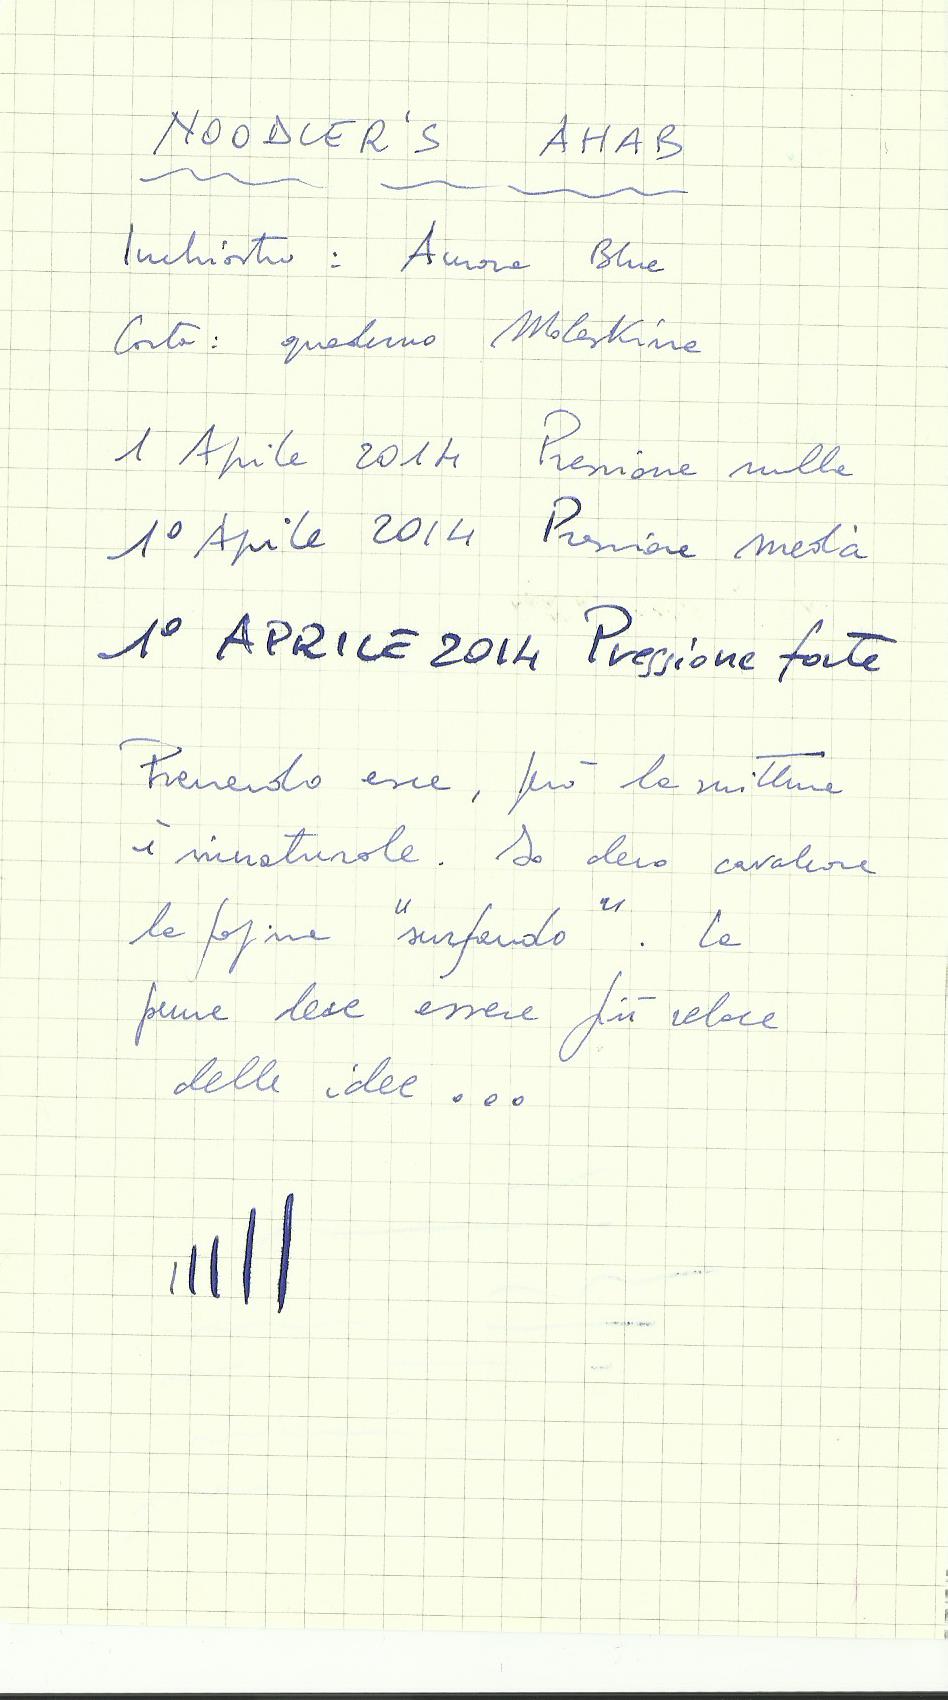 NOODLER'S AHAB
Inchiostro : Aurora Blue
Carta: quaderno Moleskine
1 Aprile 2014 Pressione nulla
1° Aprile 2014 Pressione media
1° APRILE 2014 Pressione forte
Premendo esce, però la scrittura
è innaturale. Io devo cavalcare
la pagina "surfando". La
penna deve essere più veloce
delle idee ...